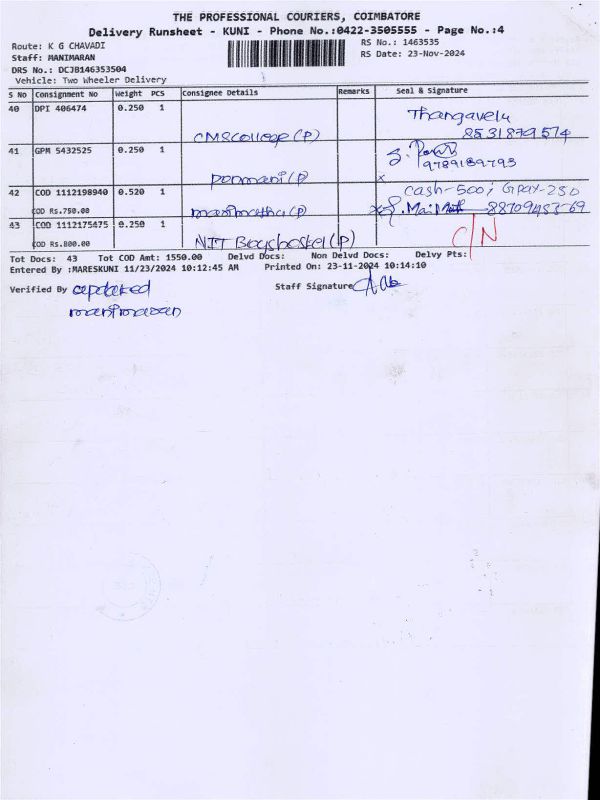 THE PROFESSIONAL COURIERS, COIMBATORE
Delivery Runsheet - KUNI - Phone No.:0422-3505555 - Page No.:4
Route: K G CHAVADI
RS No.: 1463535
Staff: MANIMARAN
RS Date: 23-Nov-2024
DRS No.: DCJB146353504
Vehicle: Two Wheeler Delivery
S No Consignment No Weight PCS Consignee Details Remarks Seal & Signature
40 DPI 406474 0.250 1
Thangavelu
CMS College (P) 8531879574
41 GPM 5432525 0.250 1
9789189793
Ponmani (P) x
42 COD 1112198940 0.520 1 Cash-500; GPay-250
COD Rs.750.00
43 COD 1112175475 0.250 1 C/N
COD Rs.800.00 NIT Boys hostel (P)
Tot Docs: 43 Tot COD Amt: 1550.00 Delvd Docs: Non Delvd Docs: Delvy Pts:
Entered By :MARESKUNI 11/23/2024 10:12:45 AM Printed On: 23-11-2024 10:14:10
Verified By updated Staff Signature
manimaran